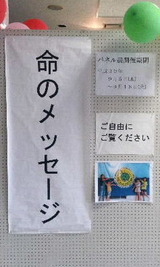 命のメッセージ
パネル展開催期間
ご自由に
ご覧ください